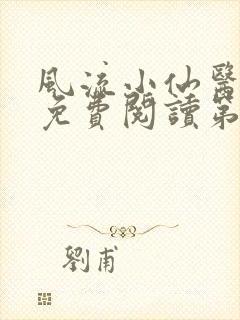 風流小仙醫
免費閱讀第
劉甫